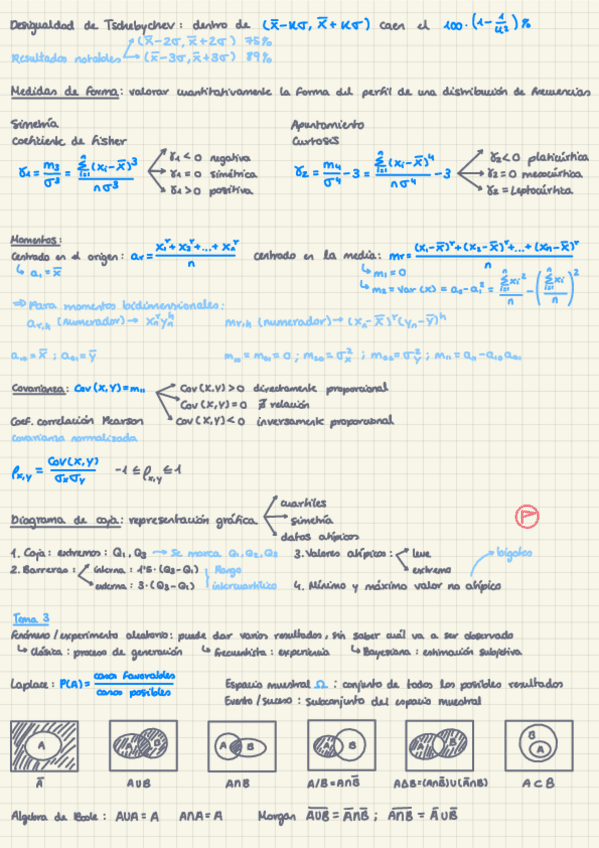 Desigualdad de Tschebychev: dentro de (x̄-kσ, x̄+kσ) caen el 100·(1-1/k²)%
Resultados notables → (x̄-2σ, x̄+2σ) 75%
→ (x̄-3σ, x̄+3σ) 89%
Medidas de forma: valorar cuantitativamente la forma del perfil de una distribución de frecuencias
Simetría
Coeficiente de Fisher
γ₁ = m₃/σ³ = Σᵢ₌₁ⁿ(xᵢ-x̄)³/nσ³
γ₁ < 0 negativa
γ₁ = 0 simétrica
γ₁ > 0 positiva
Apuntamiento
Curtosis
γ₂ = m₄/σ⁴ - 3 = Σᵢ₌₁ⁿ(xᵢ-x̄)⁴/nσ⁴ - 3
γ₂ < 0 platicúrtica
γ₂ = 0 mesocúrtica
γ₂ = Leptocúrtica
Momentos:
Centrado en el origen: aᵣ = x₁ʳ+x₂ʳ+...+xₙʳ/n
↳ a₁ = x̄
centrado en la media: mᵣ = (x₁-x̄)ʳ+(x₂-x̄)ʳ+...+(xₙ-x̄)ʳ/n
↳ m₁ = 0
↳ m₂ = Var(x) = a₀-a₁² = Σᵢ₌₁ⁿxᵢ²/n - (Σᵢ₌₁ⁿxᵢ/n)²
⇒ Para momentos bidimensionales:
aᵣ,ₕ (numerador) → xₙʳyₙʰ mᵣ,ₕ (numerador) → (xₙ-x̄)ʳ(yₙ-ȳ)ʰ
a₁₀ = x̄ ; a₀₁ = ȳ m₁₀ = m₀₁ = 0 ; m₂₀ = σ²ₓ ; m₀₂ = σ²ᵧ ; m₁₁ = a₁₁-a₁₀a₀₁
Covarianza: Cov(x,y) = m₁₁
Cov(x,y) > 0 directamente proporcional
Cov(x,y) = 0 ∄ relación
Cov(x,y) < 0 inversamente proporcional
Coef. correlación Pearson
covarianza normalizada
ρx,y = Cov(x,y)/σₓσᵧ -1 ≤ ρx,y ≤ 1
Diagrama de caja: representación gráfica
cuartiles
simetría
datos atípicos
1. Caja: extremos: Q₁, Q₃ → Se marca Q₁, Q₂, Q₃
2. Barreras: interna: 1'5·(Q₃-Q₁)
externa: 3·(Q₃-Q₁)
Rango
intercuartílico
3. Valores atípicos: leve
extremo
4. Mínimo y máximo valor no atípico
bigotes
Tema 3
Fenómeno/experimento aleatorio: puede dar varios resultados, sin saber cuál va a ser observado
↳ Clásica: proceso de generación ↳ Frecuentista: experiencia ↳ Bayesiana: estimación subjetiva
Laplace: P(A) = casos favorables/casos posibles
Espacio muestral Ω: conjunto de todos los posibles resultados
Evento/suceso: subconjunto del espacio muestral
A A B A B A B A B B A
Ā A∪B A∩B A/B=A∩B̄ A∆B=(A∩B̄)∪(Ā∩B) A⊂B
Álgebra de Boole: A∪A = A A∩A = A Morgan A̅∪̅B̅ = Ā∩B̄ ; A̅∩̅B̅ = Ā∪B̄